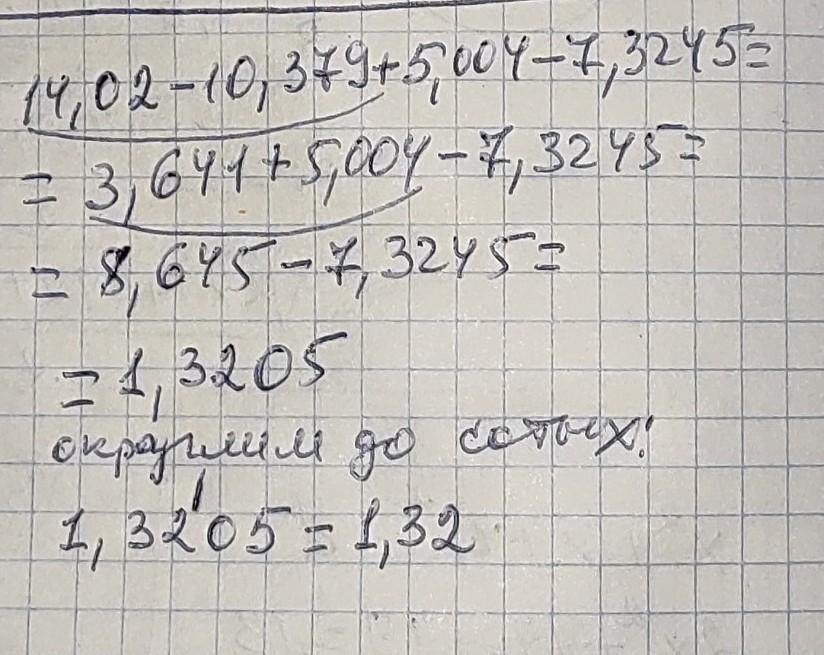 14,02-10,379+5,004-7,3245=
= 3,641+5,004-7,3245=
= 8,645-7,3245=
= 1,3205
округлим до сотых:
1,32'05=1,32